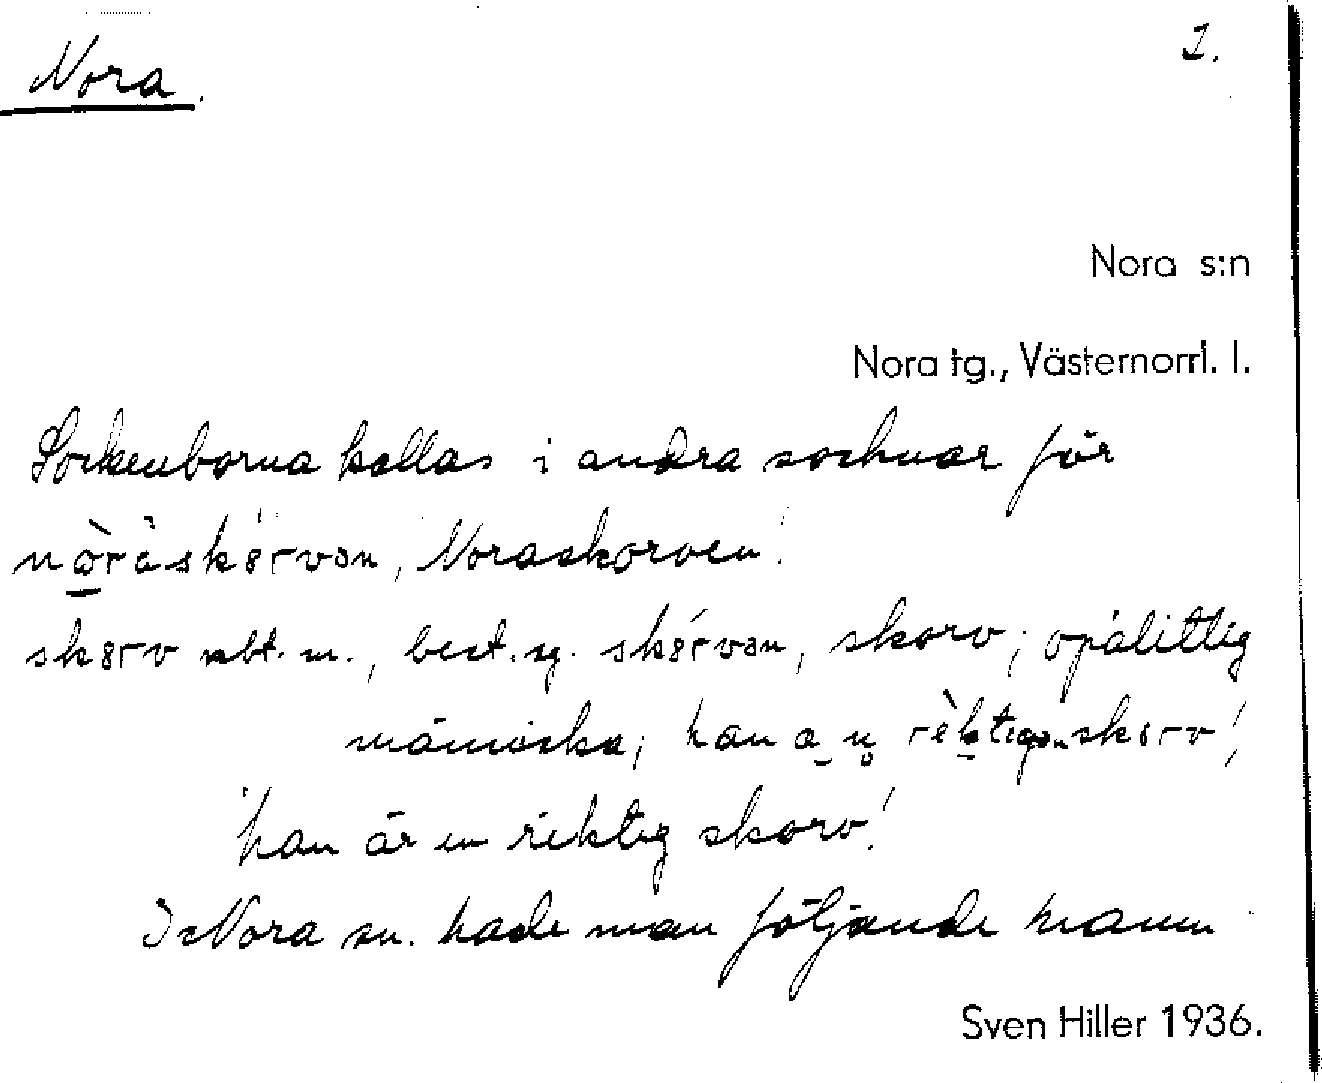 Nora.
1.
Nora s:n
Nora tg., Västernorrl. l.
Sockenborna kallas i andra socknar för
nòràskărvən, Noraskorven!
skərv sbt. m., best. sg. skə́rvən, skorv; opålitlig
människa; han a n̥ rèktigən skərv!
han är en riktig skorv!
I Nora sn. hade man följande namn
Sven Hiller 1936.